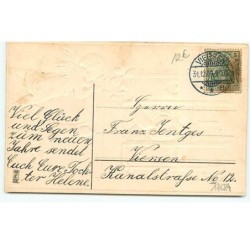 12 E
VIERSEN
31.12.
Viel Glück
und Segen
zum neuen
Jahre sendet
Euch Eure Toch-
ter Helene.
Herrn
Franz Jentges
Viersen
Kanalstraße No. 12.